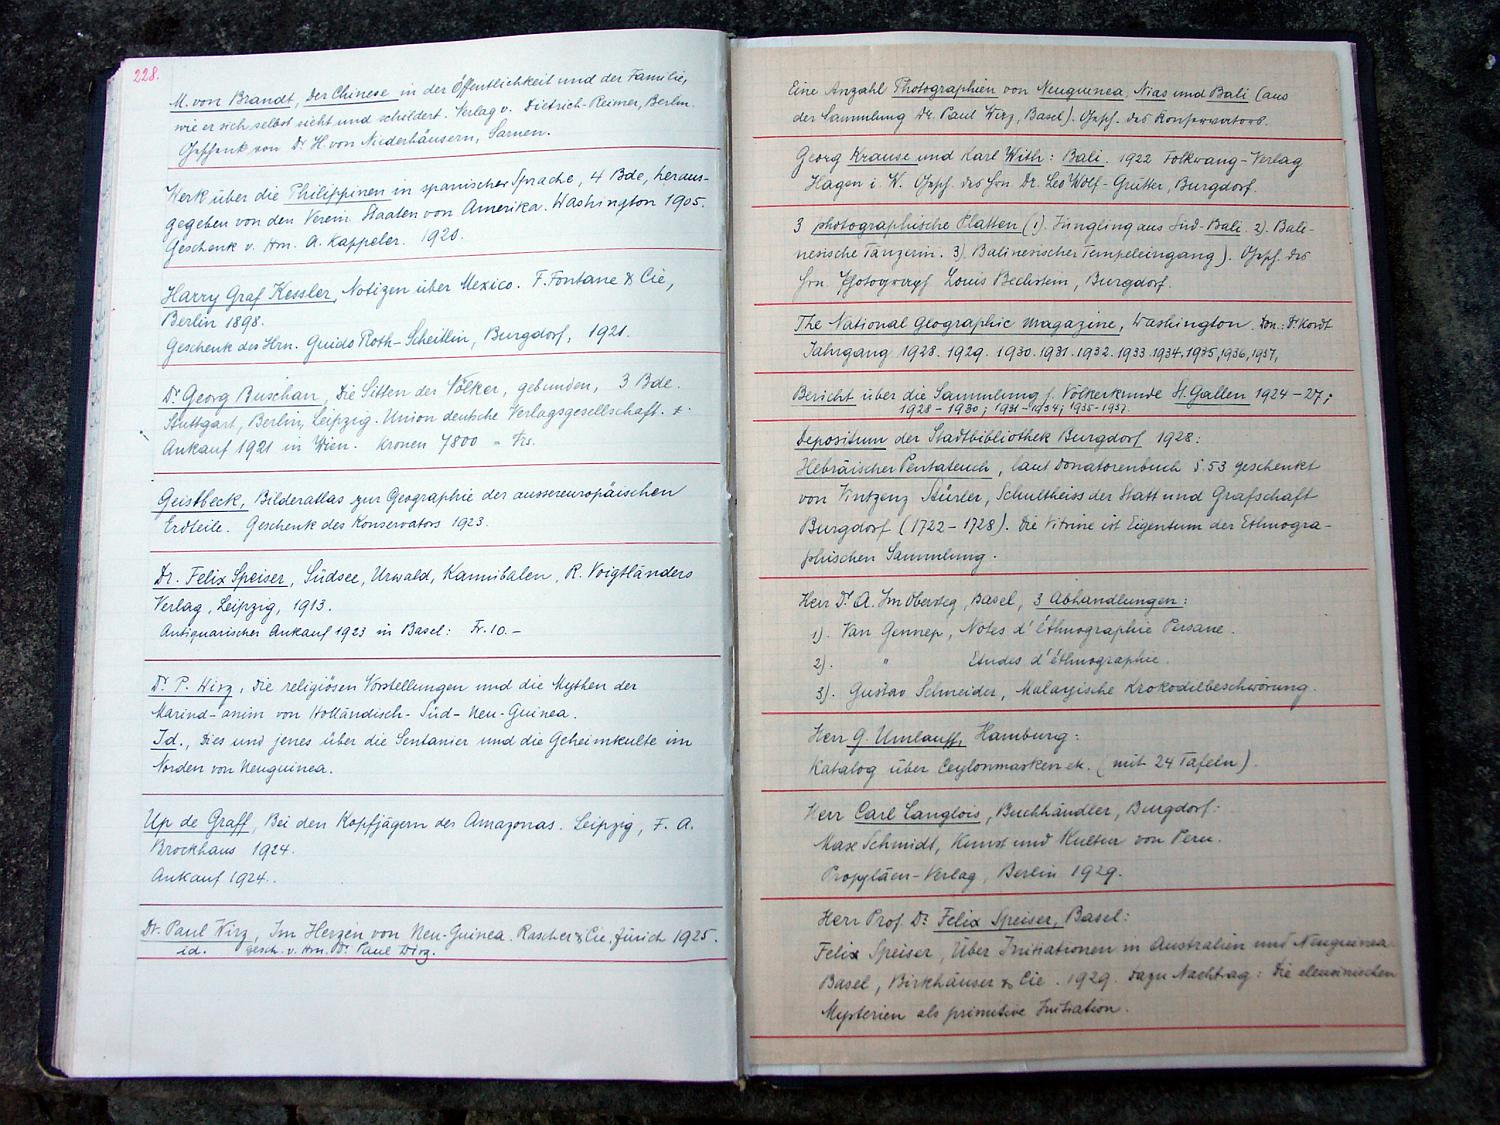 228.
M. von Brandt, Der Chinese in der Öffentlichkeit und der Familie,
wie er sich selbst sieht und schildert. Verlag v. Dietrich-Reimer, Berlin.
Geschenk von Dr H. von Niederhäusern, Sarnen.
Werk über die Philippinen in spanischer Sprache, 4 Bde, heraus-
gegeben von den Verein. Staaten von Amerika. Washington 1905.
Geschenk v. Hrn. A. Kappeler. 1920.
Harry Graf Kessler, Notizen über Mexico. F. Fontane & Cie,
Berlin 1898.
Geschenk des Hrn. Guido Roth-Scheitlin, Burgdorf, 1921.
Dr Georg Buschan, Die Sitten der Völker, gebunden, 3 Bde.
Stuttgart, Berlin, Leipzig. Union deutsche Verlagsgesellschaft.
Ankauf 1921 in Wien. Kronen 7800 = Frs.
Geistbeck, Bilderatlas zur Geographie der aussereuropäischen
Erdteile. Geschenk des Konservators 1923.
Dr. Felix Speiser, Südsee, Urwald, Kannibalen, R. Voigtländers
Verlag, Leipzig, 1913.
Antiquarischer Ankauf 1923 in Basel: Fr. 10.-
Dr P. Wirz, Die religiösen Vorstellungen und die Mythen der
Marind-anim von Holländisch-Süd-Neu-Guinea.
Id., Dies und jenes über die Sentanier und die Geheimkulte im
Norden von Neuguinea.
Up de Graff, Bei den Kopfjägern des Amazonas. Leipzig, F. A.
Brockhaus 1924.
Ankauf 1924.
Dr. Paul Wirz, Im Herzen von Neu-Guinea. Rascher & Cie, Zürich 1925.
id. gesch. v. Hrn. Dr Paul Wirz.
Eine Anzahl Photographien von Neuguinea, Nias und Bali (aus
der Sammlung Dr. Paul Wirz, Basel). Gesch. des Konservators.
Georg Krause und Karl With: Bali. 1922 Folkwang-Verlag
Hagen i. W. Gesch. des Hrn Dr. Leo Wolf-Grütter, Burgdorf.
3 photographische Platten (1). Jüngling aus Süd-Bali. 2). Bali-
nesische Tänzerin. 3). Balinesischer Tempeleingang). Gesch. des
Hrn. Photograph Louis Bechstein, Burgdorf.
The National Geographic Magazine, Washington. Don.: Dr Kordt
Jahrgang 1928. 1929. 1930. 1931. 1932. 1933. 1934. 1935, 1936, 1937,
Bericht über die Sammlung f. Völkerkunde St. Gallen 1924-27;
1928-1930; 1931-1934; 1935-1937.
Depositum der Stadtbibliothek Burgdorf 1928:
Hebräischer Pentateuch, laut Donatorenbuch S. 53 geschenkt
von Vintzenz Stürler, Schultheiss der Statt und Grafschaft
Burgdorf (1722-1728). Die Vitrine ist Eigentum der Ethnogra-
phischen Sammlung.
Herr Dr A. Im Obersteg, Basel, 3 Abhandlungen:
1). Van Gennep, Notes d'Ethnographie Persane.
2). " Etudes d'éthnographie.
3). Gustav Schneider, Malayische Krokodilbeschwörung.
Herr G. Umlauff, Hamburg:
Katalog über Ceylonmasken etc. (mit 24 Tafeln).
Herr Carl Langlois, Buchhändler, Burgdorf:
Max Schmidt, Kunst und Kultur von Peru.
Propyläen-Verlag, Berlin 1929.
Herr Prof. Dr Felix Speiser, Basel:
Felix Speiser, Über Initiationen in Australien und Neuguinea
Basel, Birkhäuser & Cie. 1929. Dazu Nachtrag: Die eleusinischen
Mysterien als primitive Initiation.